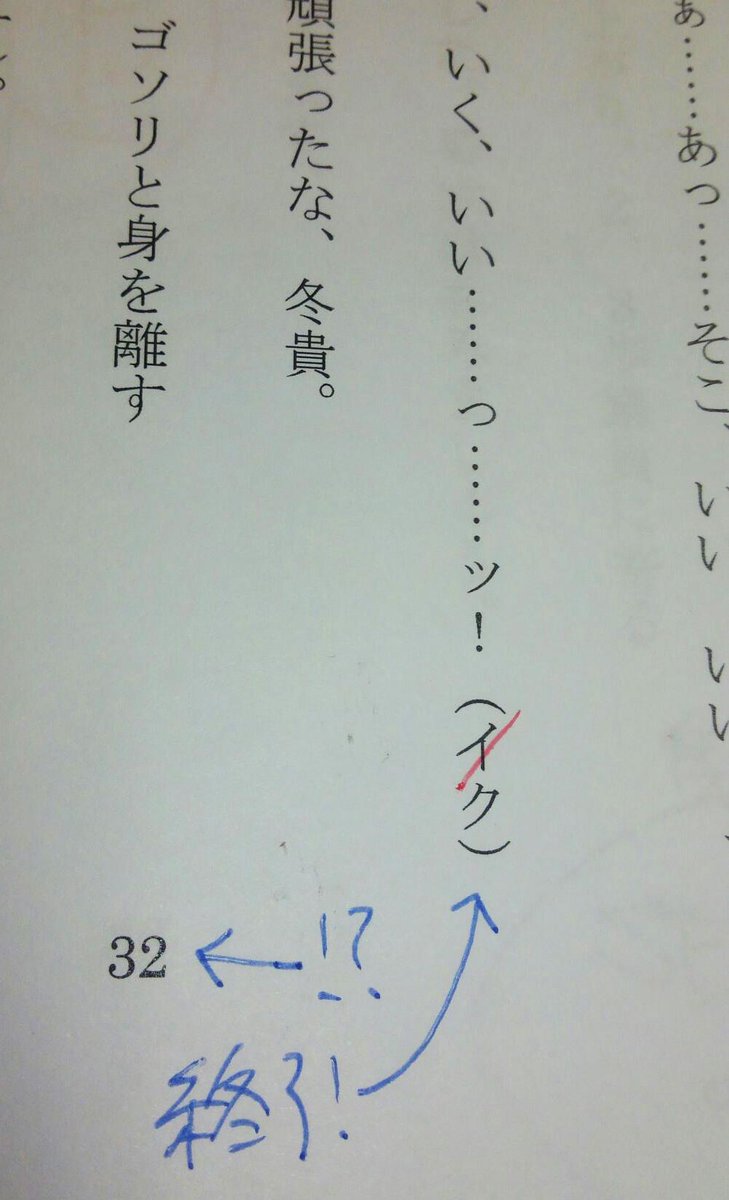 ぁ……あっ……そこ、いい いい
、いく、いい……っ……ッ！（イク）
頑張ったな、冬貴。
ゴソリと身を離す
32
!?
終了!